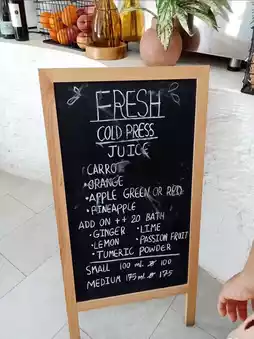 FRESH
COLD PRESS
JUICE
• CARROT
• ORANGE
• APPLE GREEN OR RED
• PINEAPPLE
ADD ON ++ 20 BATH
• GINGER • LIME
• LEMON • PASSION FRUIT
• TUMERIC POWDER
SMALL 100 ML 100
MEDIUM 175 ML 175